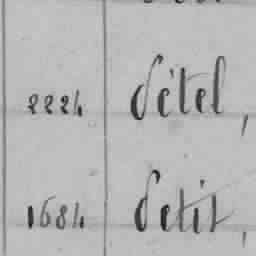 2224 Pétel,
1684 Petit,